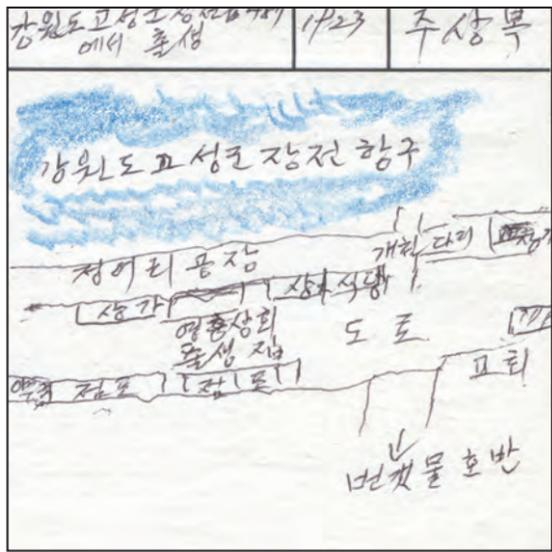 강원도고성군장전
에서 출생
1923
주상복
강원도고성군장전항구
정어리공장
개천 다리
상가
상가식당
영흥상회
출생집
도로
점포
점포
교회
번갯물호반